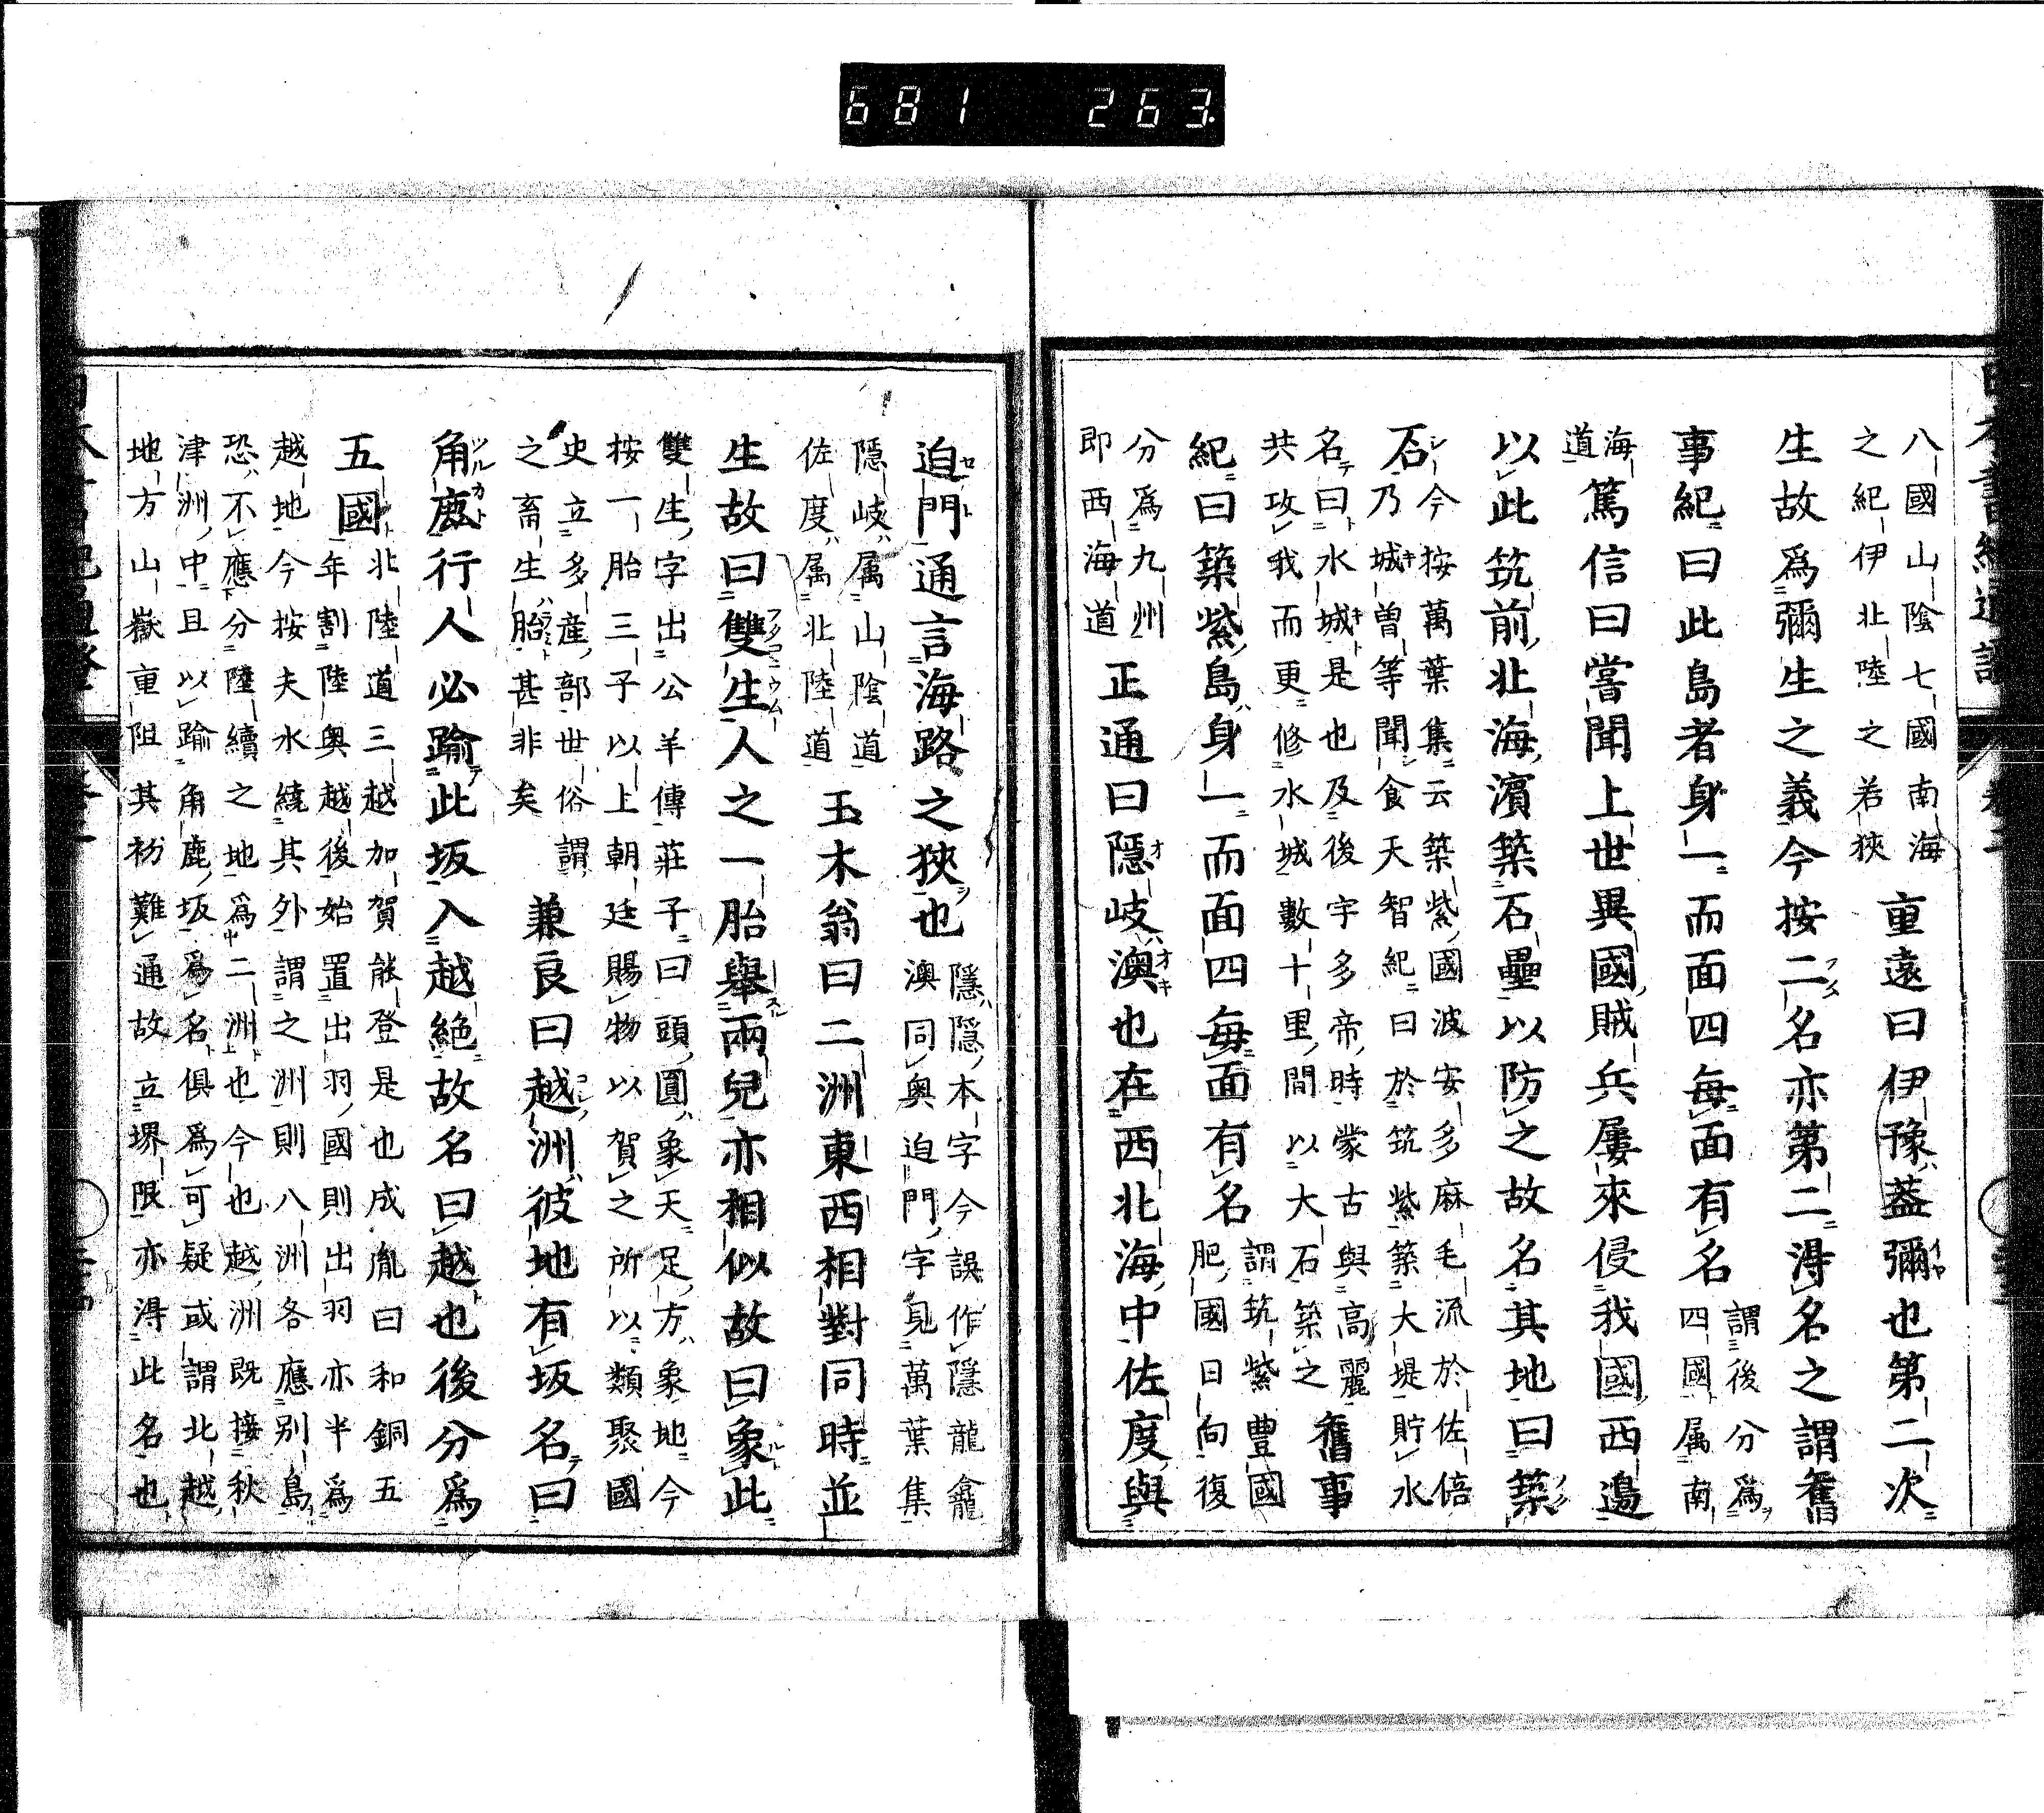 681 263
八國山陰七國南海
之紀伊北陸之若狹
重遠曰伊豫蓋彌也第二次
生故爲彌生之義今按二名亦第二得名之謂舊
事紀曰此島者身一而面四每面有名
謂後分爲
四國属南
海
道
篤信曰嘗聞上世異國賊兵屢來侵我國西邊
以此筑前北海濱築石壘以防之故名其地曰築
石
今按萬葉集云築紫國波安多麻毛流於佐倍
乃城曽等聞食天智紀曰於筑紫築大堤貯水
名曰水城是也及後宇多帝時蒙古與高麗
共攻我而更修水城數十里間以大石築之
舊事
紀曰築紫島身一而面四每面有名
謂筑紫豊國
肥國日向復
分爲九州
即西海道
正通曰隱岐澳也在西北海中佐度與
迫門通言海路之狹也
隱隱本字今誤作隱龍龕
澳同奥迫門字見萬葉集
隱岐属山陰道
佐度属北陸道
玉木翁曰二洲東西相對同時並
生故曰雙生人之一胎舉兩兒亦相似故曰象此
雙生字出公羊傳莊子曰頭圓象天足方象地今
按一胎三子以上朝廷賜物以賀之所以類聚國
史立多産部世俗謂
之畜生胎甚非矣
兼良曰越洲彼地有坂名曰
角鹿行人必踰此坂入越絶故名曰越也後分爲
五國
北陸道三越加賀能登是也成胤曰和銅五
年割陸奥越後始置出羽國則出羽亦半爲
越地今按夫水繞其外謂之洲則八洲各應别島
恐不應分陸續之地爲二洲也今也越洲既接秋
津洲中且以踰角鹿坂爲名俱爲可疑或謂北越
地方山嶽重阻其初難通故立堺限亦得此名也